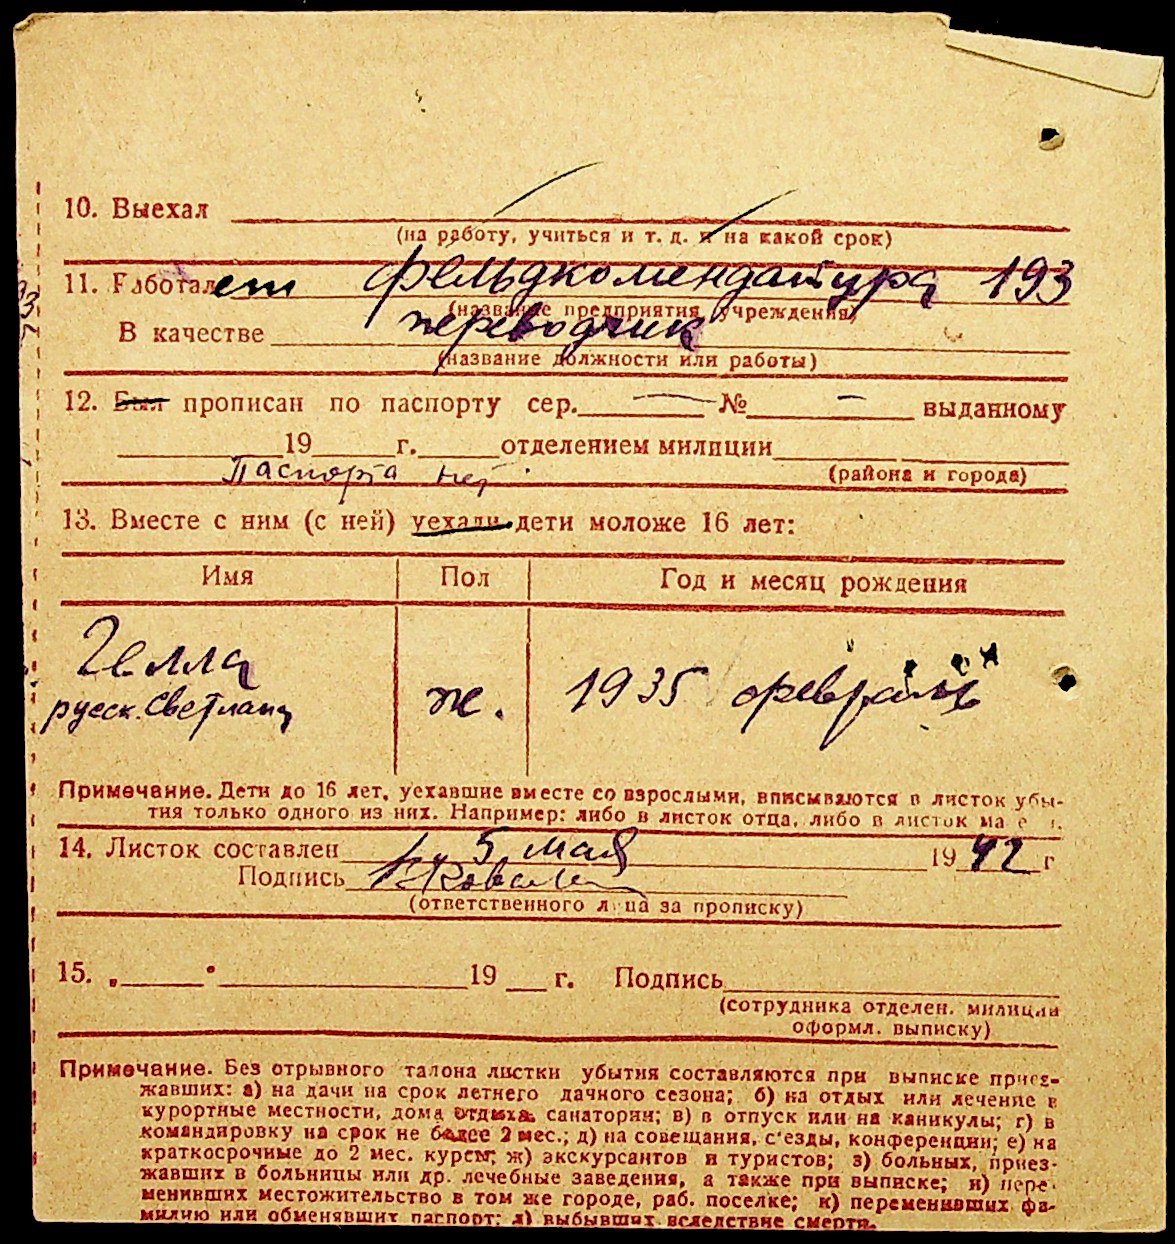 10. Выехал
(на работу, учиться и т. д. и на какой срок)
11. Работает фельдкомендатура 193
(название предприятия, учреждения)
В качестве переводчик
(название должности или работы)
12. Был прописан по паспорту сер. — № — выданному
19 г. отделением милиции
Паспорта нет.
(района и города)
13. Вместе с ним (с ней) уехали дети моложе 16 лет:
Имя Пол Год и месяц рождения
Гелла
русск. Светлана ж. 1935 февраль
Примечание. Дети до 16 лет, уехавшие вместе со взрослыми, вписываются в листок убы-
тия только одного из них. Например: либо в листок отца, либо в листок
14. Листок составлен 5 мая 1942 г
Подпись
(ответственного лица за прописку)
15. „ " 19 г. Подпись
(сотрудника отделен. милиции
оформл. выписку)
Примечание. Без отрывного талона листки убытия составляются при выписке приез-
жавших: а) на дачи на срок летнего дачного сезона; б) на отдых или лечение в
курортные местности, дома отдыха, санатории; в) в отпуск или на каникулы; г) в
командировку на срок не более 2 мес.; д) на совещания, с'езды, конференции; е) на
краткосрочные до 2 мес. курсы; ж) экскурсантов и туристов; з) больных, приез-
жавших в больницы или др. лечебные заведения, а также при выписке; и) пере-
менивших местожительство в том же городе, раб. поселке; к) переменивших фа-
милию или обменявших паспорт; л) выбывших вследствие смерти.